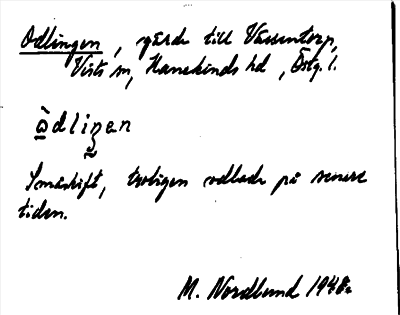 Odlingen, gärde till Vässentorp,
Vists sn, Hanekinds hd, Östg. l.
òdliŋen
Småskift, troligen odlade på senare
tiden.
M. Nordlund 1948.